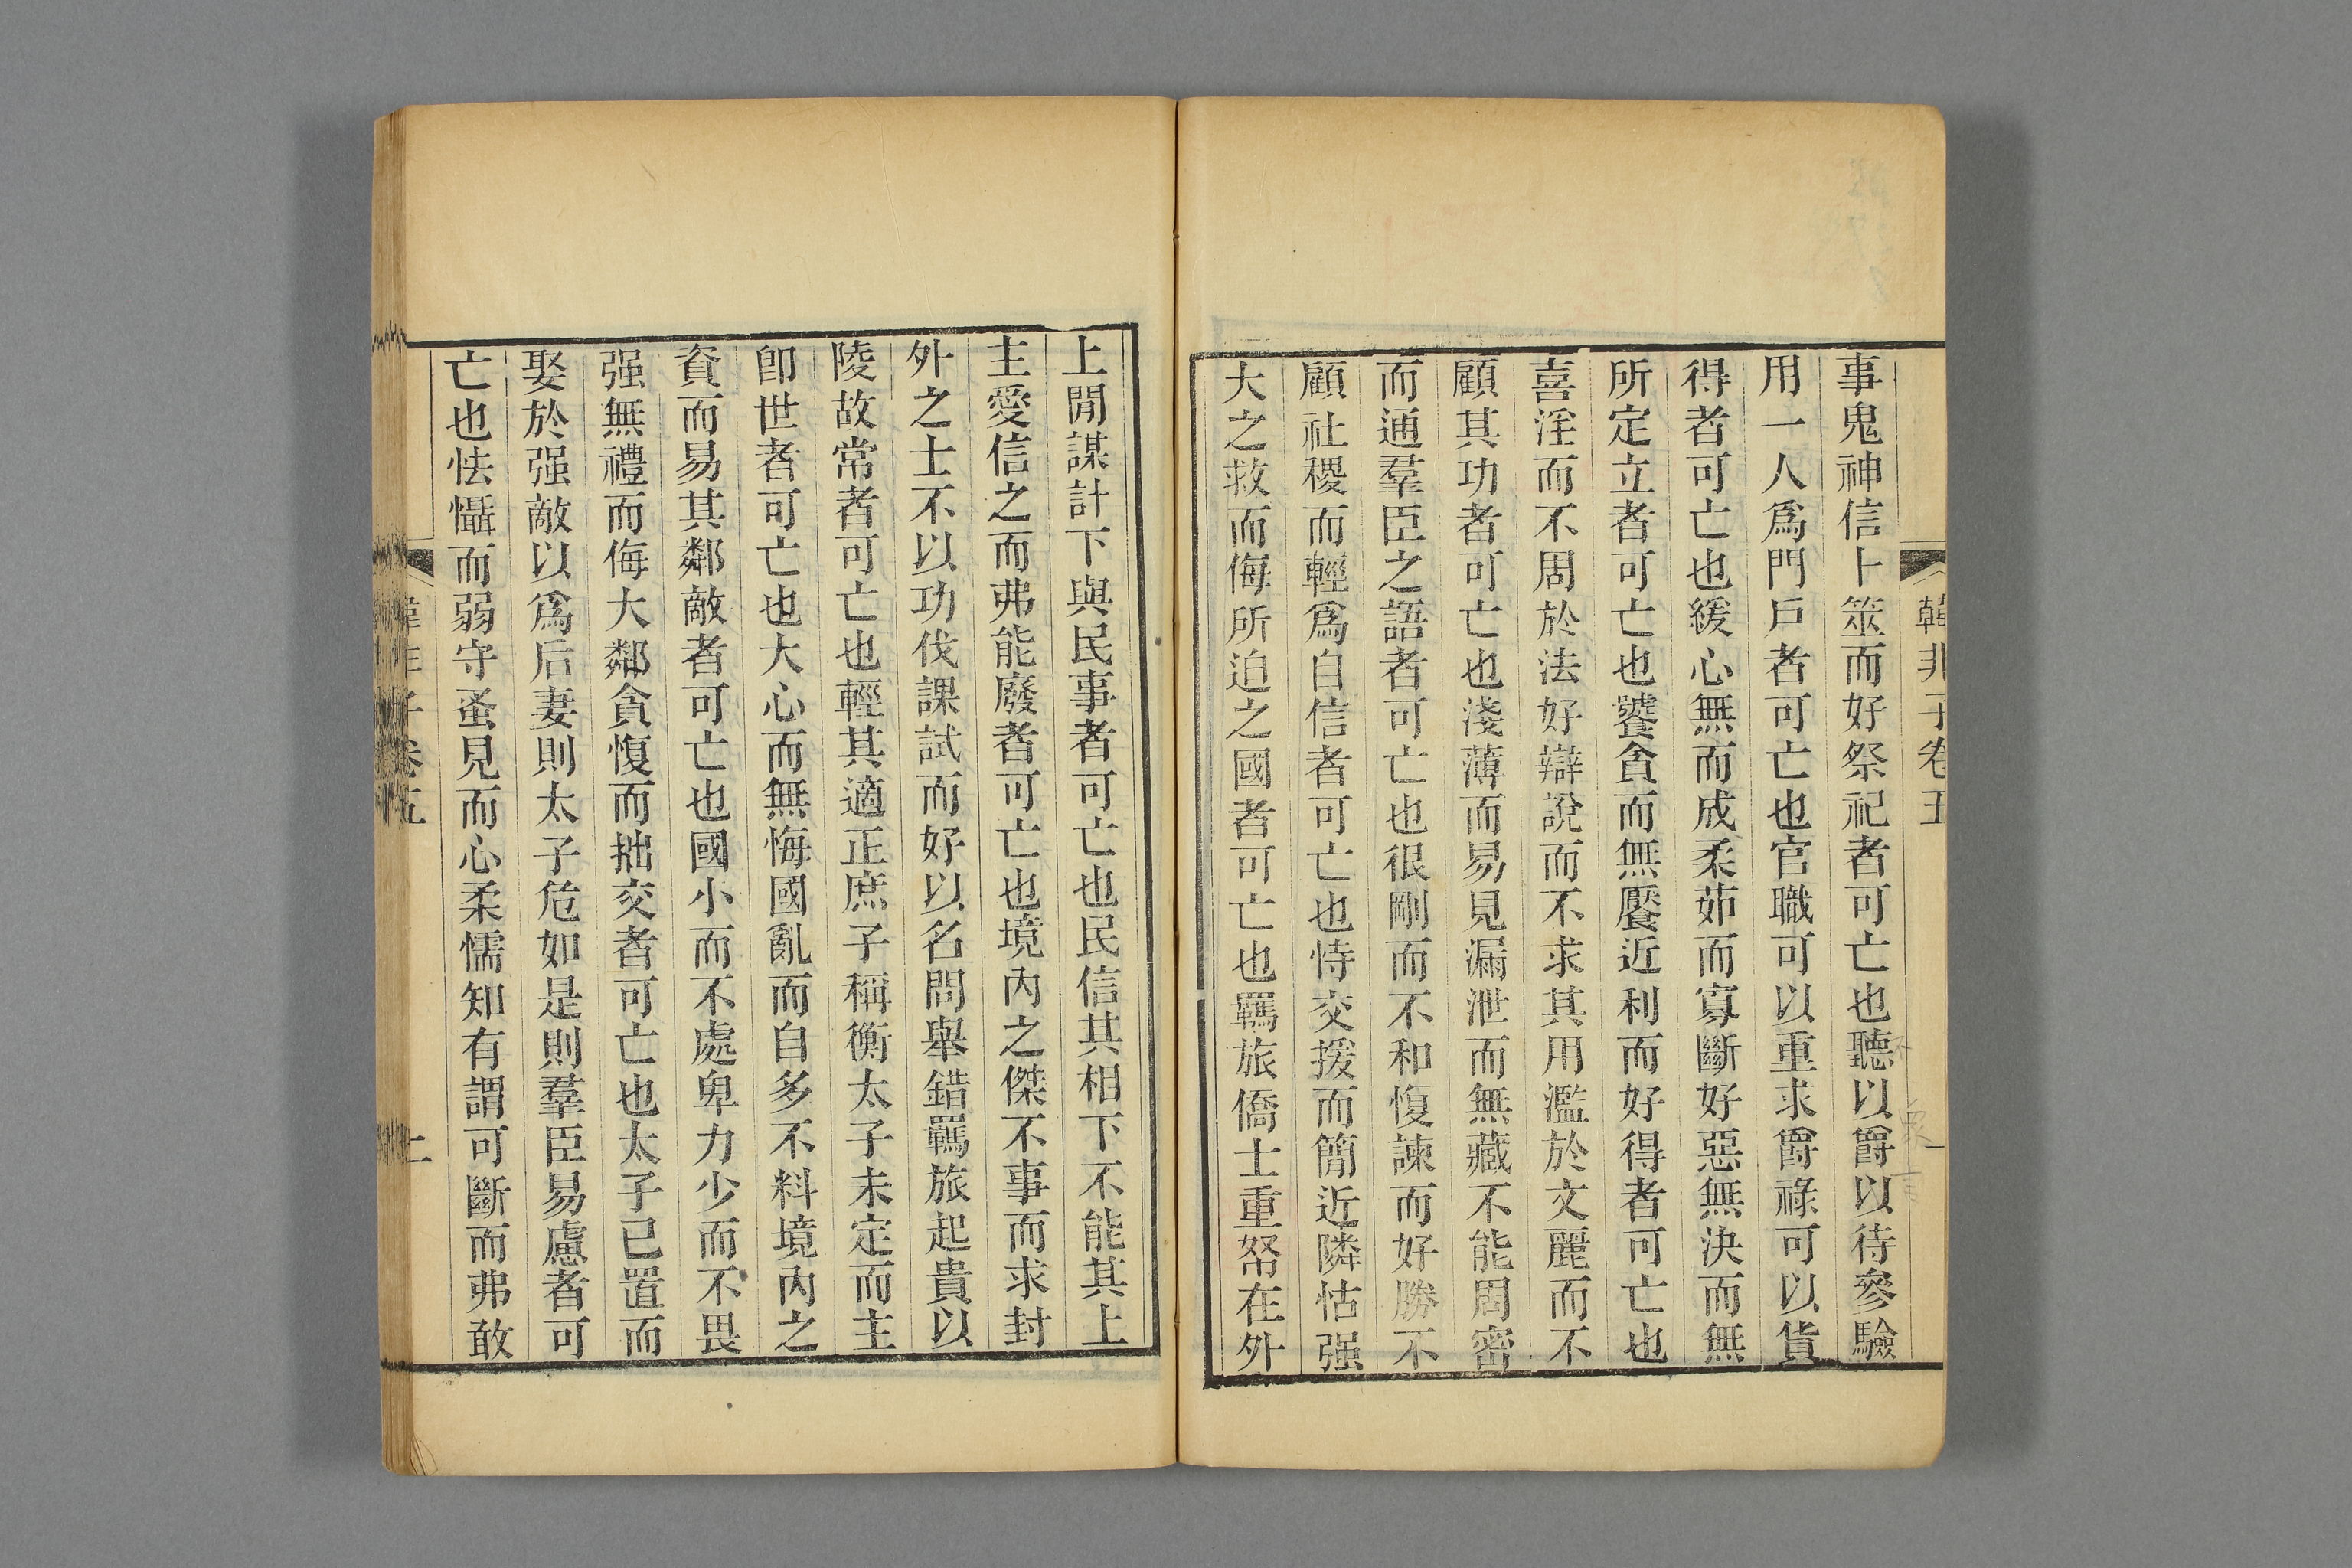 韓非子卷五
事鬼神信卜筮而好祭祀者可亡也聽以爵以待參驗
用一人爲門戶者可亡也官職可以重求爵祿可以貨
得者可亡也緩心無而成柔茹而寡斷好惡無決而無
所定立者可亡也饕貪而無饜近利而好得者可亡也
喜淫而不周於法好辯說而不求其用濫於文麗而不
顧其功者可亡也淺薄而易見漏泄而無藏不能周密
而通羣臣之語者可亡也很剛而不和愎諫而好勝不
顧社稷而輕爲自信者可亡也恃交援而簡近隣怙强
大之救而侮所迫之國者可亡也羈旅僑士重帑在外
上閒謀計下與民事者可亡也民信其相下不能其上
主愛信之而弗能廢者可亡也境內之傑不事而求封
外之士不以功伐課試而好以名問舉錯羈旅起貴以
陵故常者可亡也輕其適正庶子稱衡太子未定而主
卽世者可亡也大心而無悔國亂而自多不料境內之
資而易其鄰敵者可亡也國小而不處卑力少而不畏
强無禮而侮大鄰貪愎而拙交者可亡也太子已置而
娶於强敵以爲后妻則太子危如是則羣臣易慮者可
亡也怯懾而弱守蚤見而心柔懦知有謂可斷而弗敢